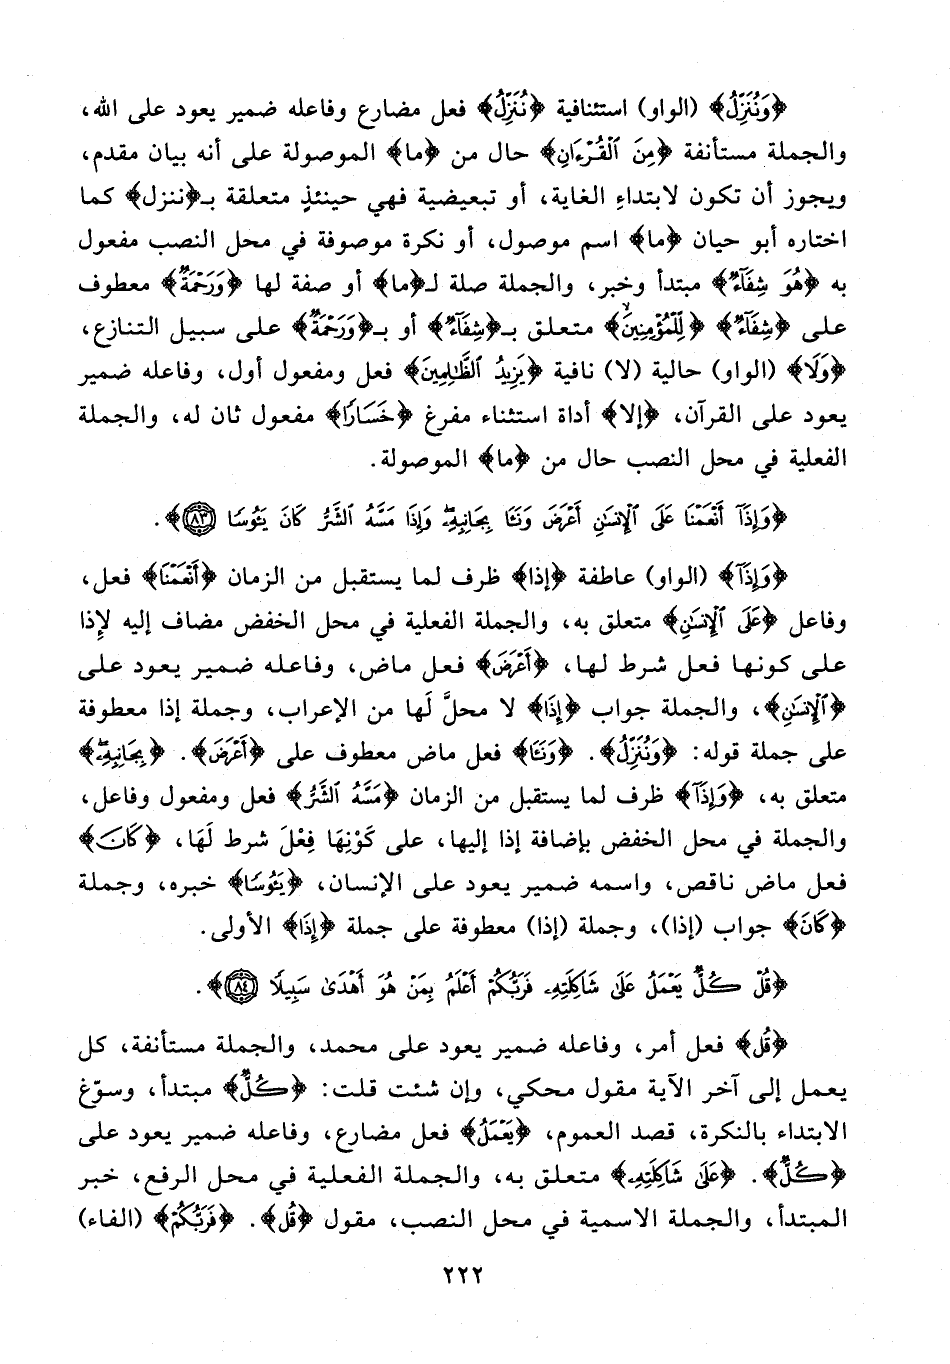 ﴿وَنُنَزِّلُ﴾ (الواو) استئنافية ﴿نُنَزِّلُ﴾ فعل مضارع وفاعله ضمير يعود على الله،
والجملة مستأنفة ﴿مِنَ ٱلْقُرْءَانِ﴾ حال من ﴿ما﴾ الموصولة على أنه بيان مقدم،
ويجوز أن تكون لابتداءِ الغاية، أو تبعيضية فهي حينئذٍ متعلقة بـ﴿ننزل﴾ كما
اختاره أبو حيان ﴿ما﴾ اسم موصول، أو نكرة موصوفة في محل النصب مفعول
به ﴿هُوَ شِفَآءٌ﴾ مبتدأ وخبر، والجملة صلة لـ﴿ما﴾ أو صفة لها ﴿وَرَحْمَةٌ﴾ معطوف
على ﴿شِفَآءٌ﴾ ﴿لِّلْمُؤْمِنِينَۙ﴾ متعلق بـ﴿شِفَآءٌ﴾ أو بـ﴿وَرَحْمَةٌ﴾ على سبيل التنازع،
﴿وَلَا﴾ (الواو) حالية (لا) نافية ﴿يَزِيدُ ٱلظَّٰلِمِينَ﴾ فعل ومفعول أول، وفاعله ضمير
يعود على القرآن، ﴿إلا﴾ أداة استثناء مفرغ ﴿خَسَارًا﴾ مفعول ثان له، والجملة
الفعلية في محل النصب حال من ﴿ما﴾ الموصولة.
﴿وَإِذَآ أَنْعَمْنَا عَلَى ٱلْإِنسَٰنِ أَعْرَضَ وَنَـَٔا بِجَانِبِهِۦۖ وَإِذَا مَسَّهُ ٱلشَّرُّ كَانَ يَـُٔوسًا ٨٣﴾.
﴿وَإِذَآ﴾ (الواو) عاطفة ﴿إذا﴾ ظرف لما يستقبل من الزمان ﴿أَنْعَمْنَا﴾ فعل،
وفاعل ﴿عَلَى ٱلْإِنسَٰنِ﴾ متعلق به، والجملة الفعلية في محل الخفض مضاف إليه لإِذا
على كونها فعل شرط لها، ﴿أَعْرَضَ﴾ فعل ماض، وفاعله ضمير يعود على
﴿ٱلْإِنسَٰنِ﴾، والجملة جواب ﴿إِذَا﴾ لا محلَّ لَها من الإعراب، وجملة إذا معطوفة
على جملة قوله: ﴿وَنُنَزِّلُ﴾. ﴿وَنَـَٔا﴾ فعل ماض معطوف على ﴿أَعْرَضَ﴾. ﴿بِجَانِبِهِۦۖ﴾
متعلق به، ﴿وَإِذَآ﴾ ظرف لما يستقبل من الزمان ﴿مَسَّهُ ٱلشَّرُّ﴾ فعل ومفعول وفاعل،
والجملة في محل الخفض بإضافة إذا إليها، على كَوْنِهَا فِعْلَ شرط لَهَا، ﴿كَانَ﴾
فعل ماض ناقص، واسمه ضمير يعود على الإنسان، ﴿يَـُٔوسًا﴾ خبره، وجملة
﴿كَانَ﴾ جواب (إذا)، وجملة (إذا) معطوفة على جملة ﴿إِذَا﴾ الأولى.
﴿قُلْ كُلٌّ يَعْمَلُ عَلَىٰ شَاكِلَتِهِۦ فَرَبُّكُمْ أَعْلَمُ بِمَنْ هُوَ أَهْدَىٰ سَبِيلًا ٨٤﴾.
﴿قُل﴾ فعل أمر، وفاعله ضمير يعود على محمد، والجملة مستأنفة، كل
يعمل إلى آخر الآية مقول محكي، وإن شئت قلت: ﴿كُلٌّ﴾ مبتدأ، وسوّغ
الابتداء بالنكرة، قصد العموم، ﴿يَعْمَلُ﴾ فعل مضارع، وفاعله ضمير يعود على
﴿كُلٌّ﴾. ﴿عَلَىٰ شَاكِلَتِهِۦ﴾ متعلق به، والجملة الفعلية في محل الرفع، خبر
المبتدأ، والجملة الاسمية في محل النصب، مقول ﴿قُل﴾. ﴿فَرَبُّكُمْ﴾ (الفاء)
٢٢٢